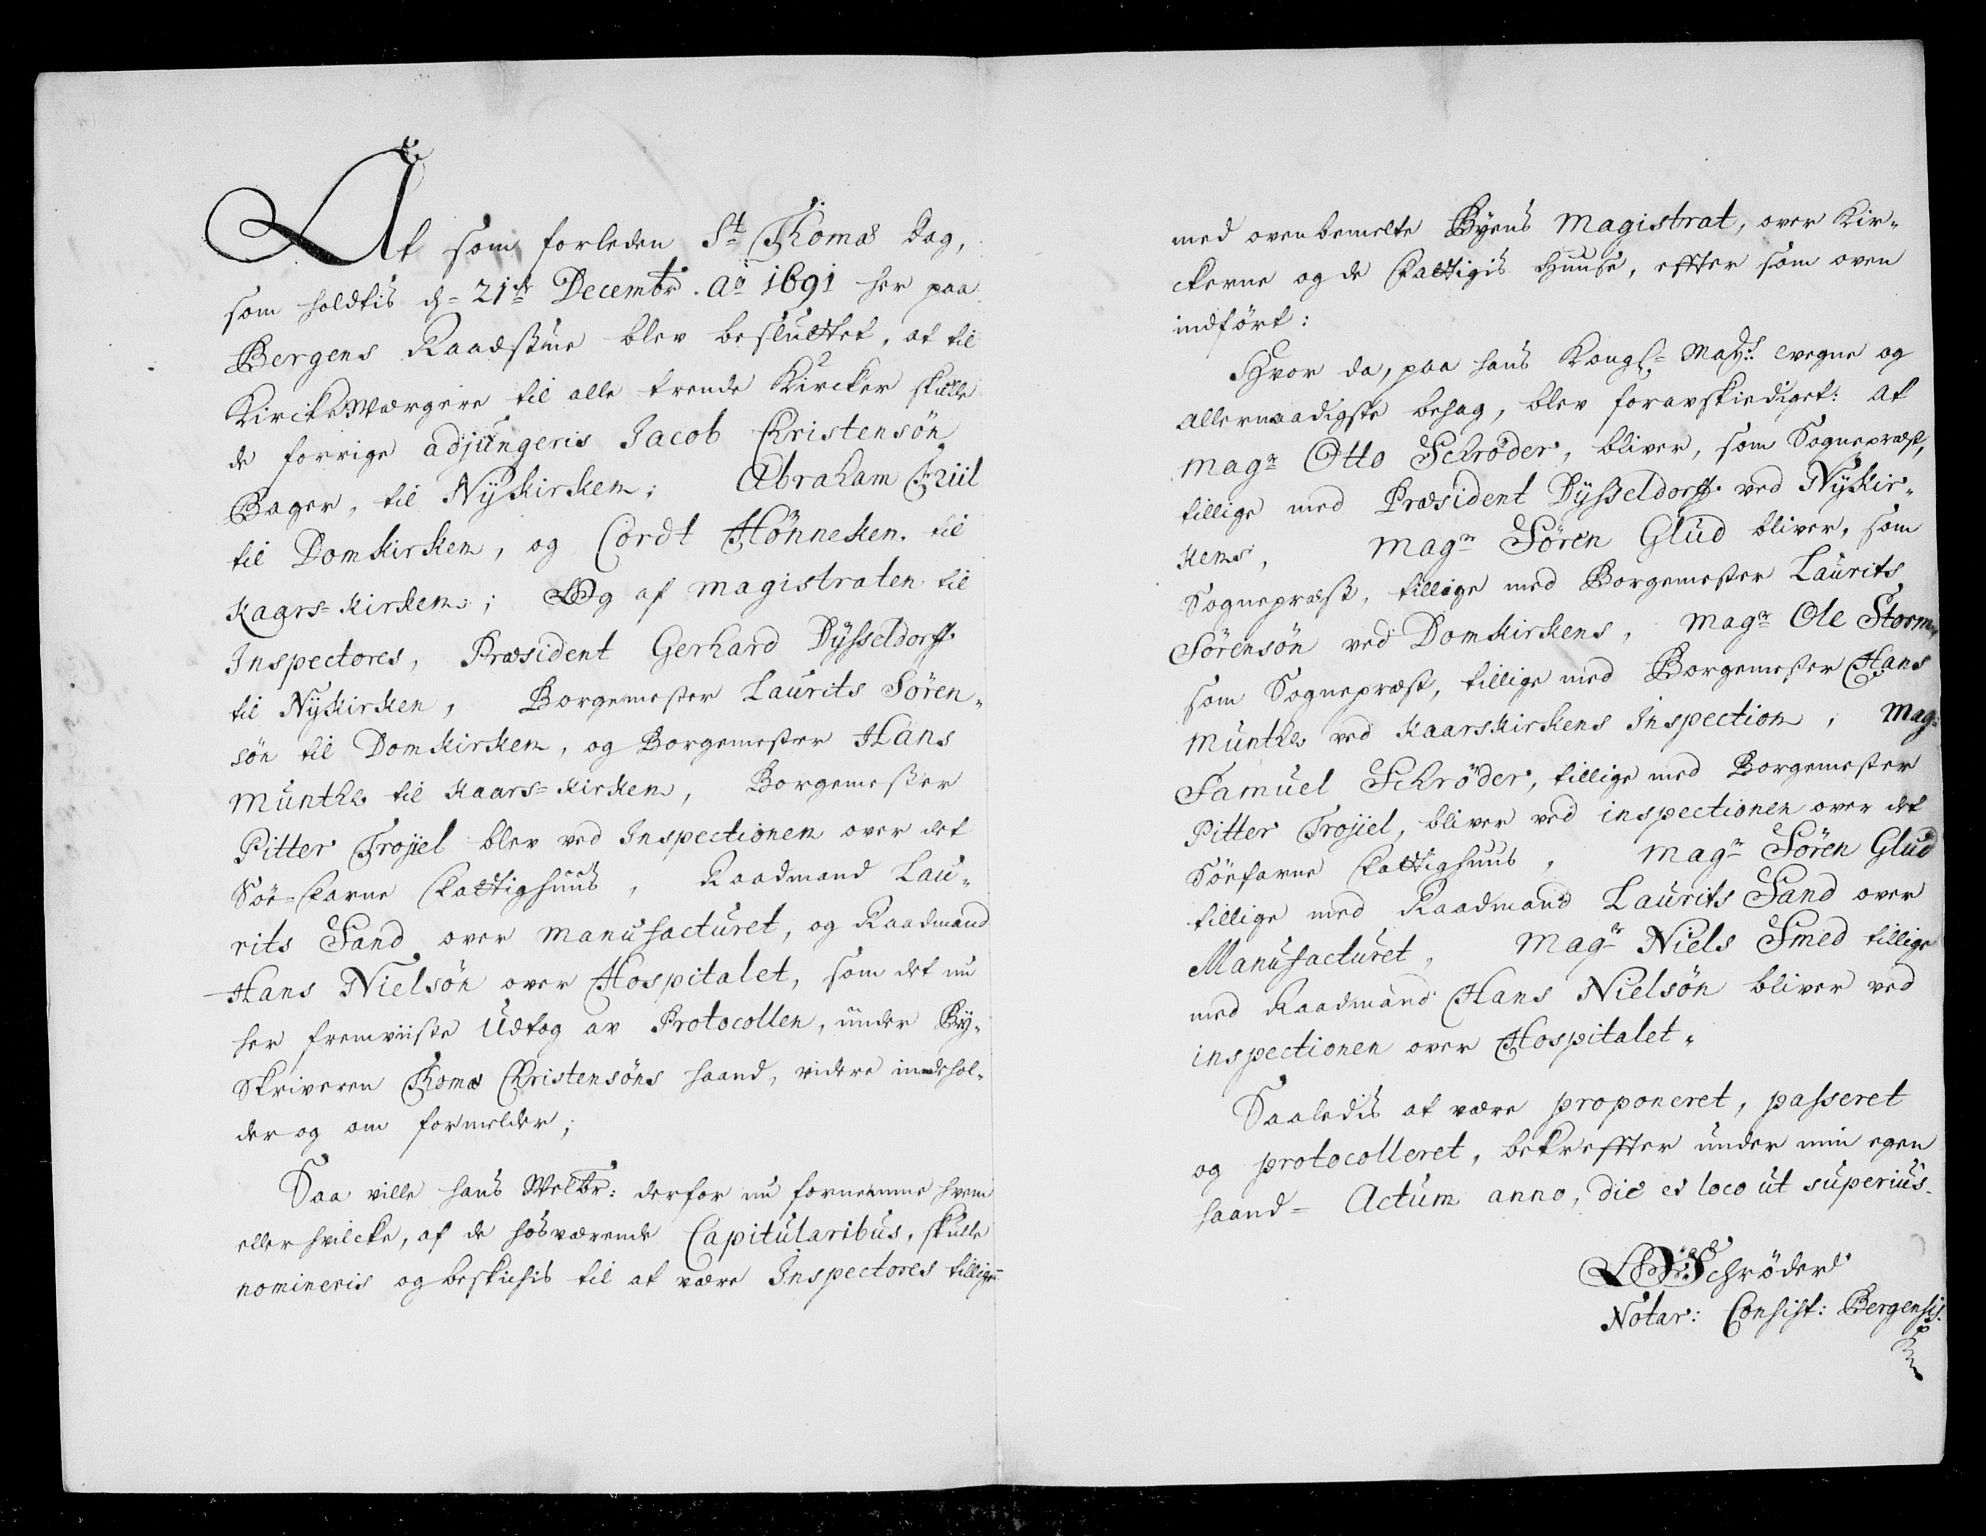 At som forleden St. Thomæ Dag,
som holdtis d= 21de Decembr. Ao 1691 her paa
Bergens Raadstue blev besluttet, at til
Kircke Wærgere til alle trende Kircker skulle
de forrige adjungeris Jacob Christensøn
Bager, til Nykirken; Abraham Thiil
til Domkirken, og Cordt Hønneken til
Kaars=Kirken; Og af Magistraten til
Inspectores, Præsident Gerhard Dysseldorff
til Nykirken, Borgemester Laurits Søren-
søn til Domkirken, og Borgemester Hans
Munthe til Kaars=Kirken, Borgemester
Pitter Trojel blev ved Inspectionen over det
Søe=farne Fattighuus, Raadmand Lau-
rits Sand over Manufacturet, og Raadmand
Hans Nielsøn over Hospitalet, som det nu
her fremviiste Udtog av Protocollen, under By-
Skriveren Thomæ Christensøns haand, videre indehol-
der og om formelder;
Saa ville hans Welbr: derfor nu fornemme hvem
eller hvilcke, af de hosværende Capitularibus, skulle
nomineris og beskichis til at være Inspectores tillige
med ovenbemelte Byens Magistrat, over Kir-
ckerne og de Fattigis Huuse, effter som oven
indført:
Hvor da, paa hans Kongl= Mayts vegne og
allernaadigste behag, blev foravskediget: at
Magr Otto Schrøder, bliver, som Sognepræst,
tillige med Præsident Dysseldorff ved Nykir-
kens, Magr Søren Glud bliver, som
Sognepræst, tillige med Borgemester Laurits
Sørensøn ved Domkirkens, Magr Ole Storm
som Sognepræst, tillige med Borgemester Hans
Munthe ved Kaarskirkens Inspection, Mag:
Samuel Schrøder, tillige med Borgemester
Pitter Trojel, bliver ved inspectionen over det
Søefarne Fattighuus, Magr Søren Glud
tillige med Raadmand Laurits Sand over
Manufacturet, Magr Niels Smed tillige
med Raadmand Hans Nielsøn bliver ved
inspectionen over Hospitalet.
Saaledis at være proponeret, passeret
og protocolleret, bekreffter under min egen
haand= Actum anno, die et loco ut superius.
Schrøder
Notar: Consist: Bergensis.